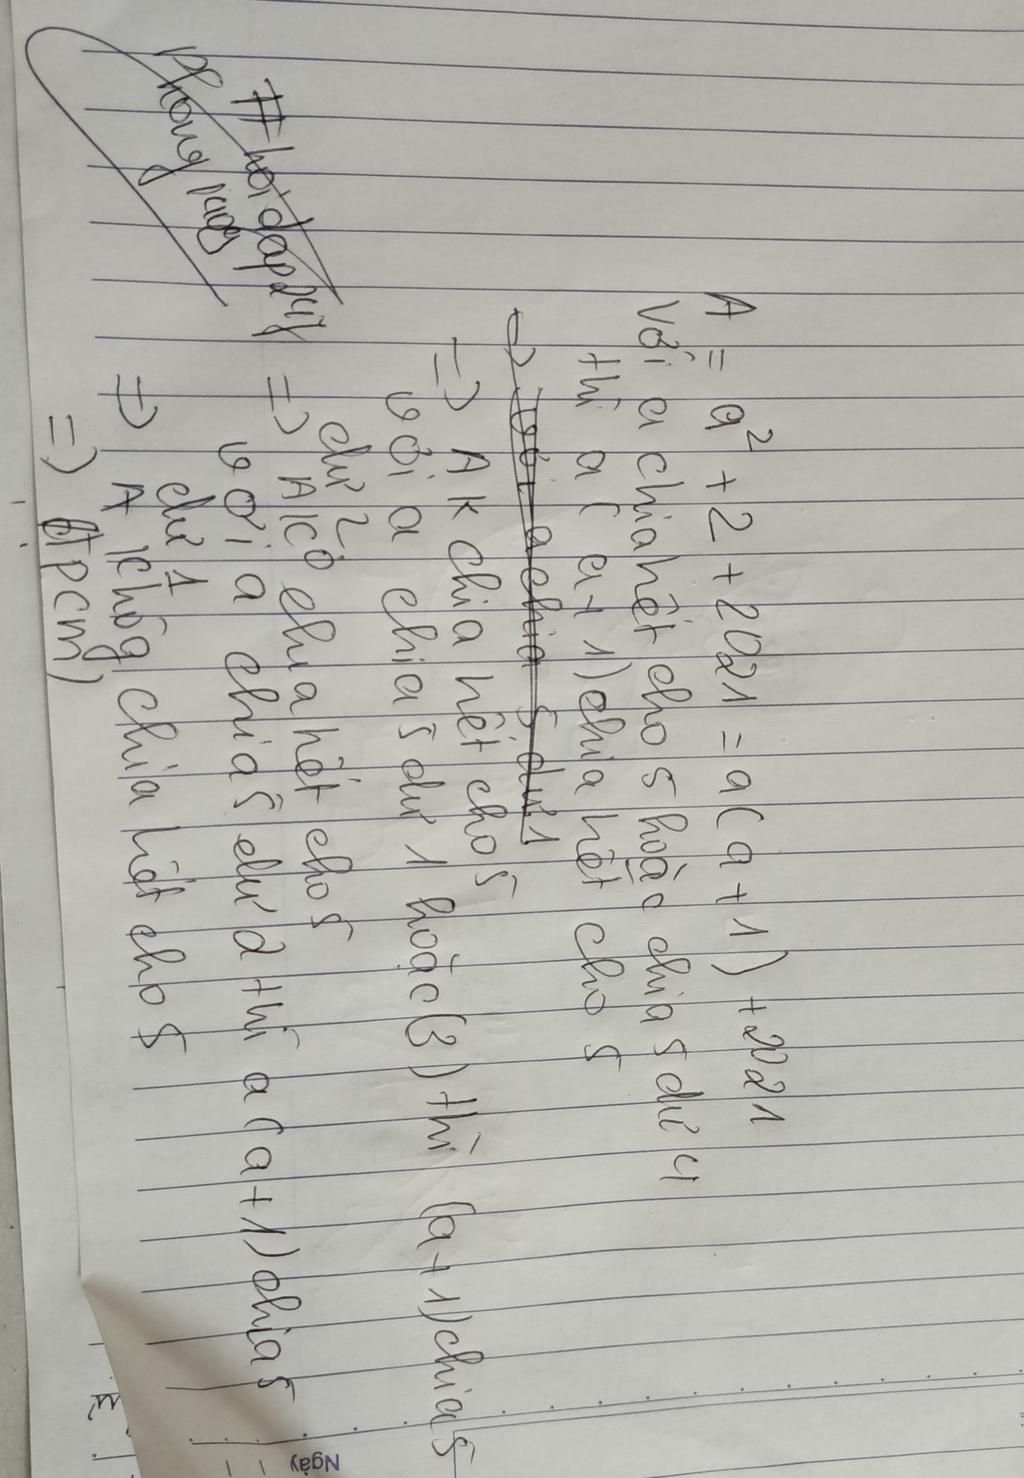 A = a² + 2 + 2021 = a( a + 1 ) + 2021
Với a chia hết cho 5 hoặc chia 5 dư 4
thì a ( a + 1 ) chia hết cho 5
=> Với a chia 5 dư 1
=> A K chia hết cho 5
với a chia 5 dư 1 hoặc (3) thì (a + 1) chia 5
dư 2
=> A K có chia hết cho 5
với a chia 5 dư 2 thì a ( a + 1 ) chia 5
dư 1
=> A không chia hết cho 5
=> (đpcm)
#hoidap247
Phong
Ngày